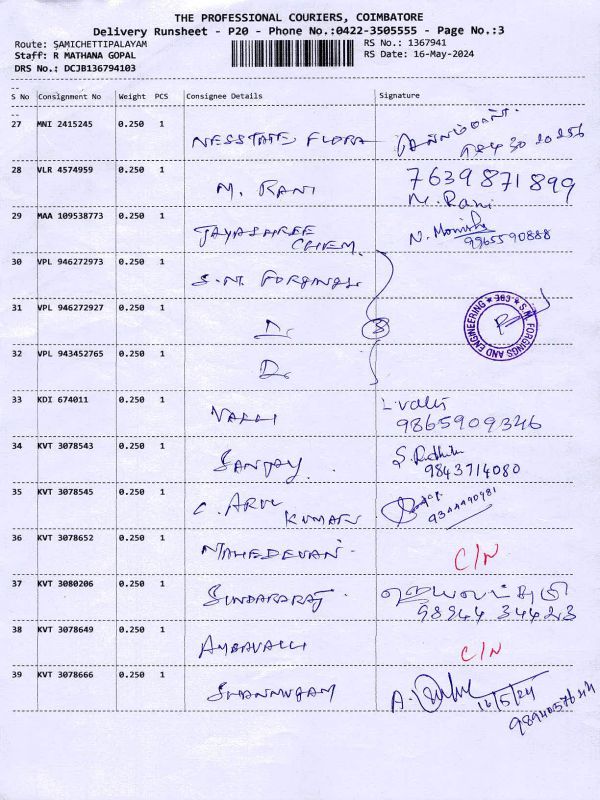 THE PROFESSIONAL COURIERS, COIMBATORE
Delivery Runsheet - P20 - Phone No.:0422-3505555 - Page No.:3
Route: SAMICHETTIPALAYAM
RS No.: 1367941
Staff: R MATHANA GOPAL
RS Date: 16-May-2024
DRS No.: DCJB136794103
S No Consignment No Weight PCS Consignee Details Signature
27 MNI 2415245 0.250 1 NESSTATE FLORA
28 VLR 4574959 0.250 1 M. RANI 7639871899
M. Rani
29 MAA 109538773 0.250 1 JAYASHREE CHEM. N. Monisha
9965590888
30 VPL 946272973 0.250 1 S.M. FORGINGS
31 VPL 946272927 0.250 1 Do 3
S.M. FORGINGS AND ENGINEERING ★ CBE ★
32 VPL 943452765 0.250 1 Do
33 KDI 674011 0.250 1 VALLI L. valli
9865909346
34 KVT 3078543 0.250 1 SANJAY.
9843714080
35 KVT 3078545 0.250 1 C. ARUL KUMAR
36 KVT 3078652 0.250 1 MAHEDEVAN. C/N
37 KVT 3080206 0.250 1 SUNDARARAJ.
98944 34423
38 KVT 3078649 0.250 1 AMBAVALLI C/N
39 KVT 3078666 0.250 1 SHANMUGAM
16/5/24